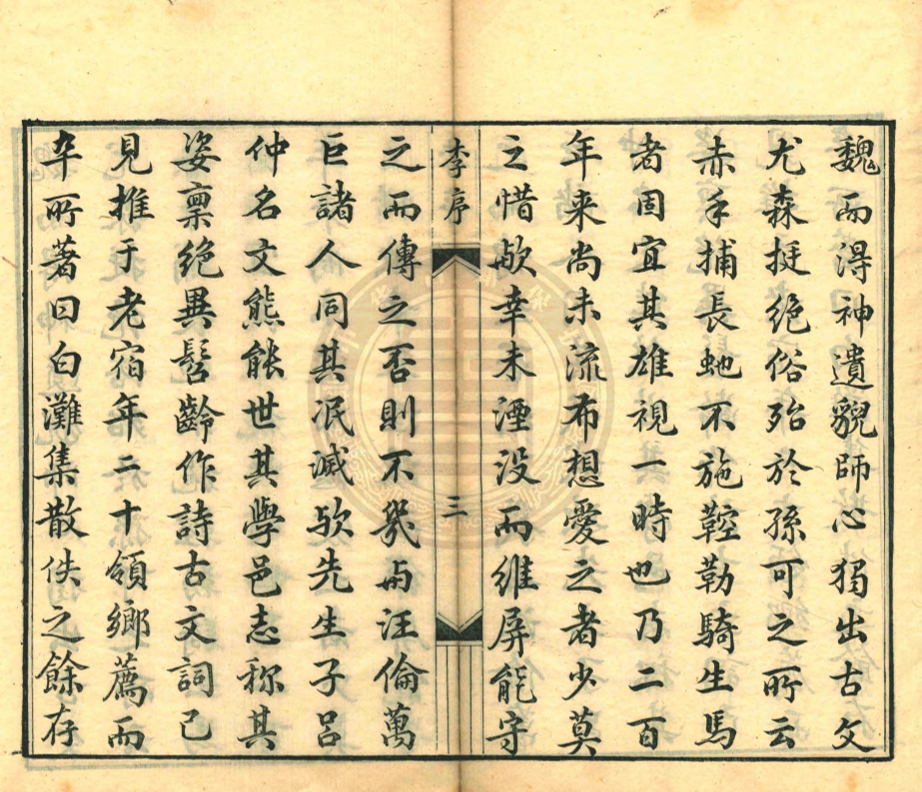 魏而得神遺貌師心獨出古文
尤森挺絶俗殆於孫可之所云
赤手捕長虵不施鞚勒騎生馬
者固宜其雄視一時也乃二百
年来尚未流布想愛之者少莫
之惜歟幸未湮没而維屏能守
李序
三
之而傳之否則不幾与汪倫萬
巨諸人同其泯滅欤先生子吕
仲名文熊能世其學邑志称其
姿禀絶異髫齡作詩古文詞已
見推于老宿年二十領鄉薦而
卒所著曰白灘集散佚之餘存